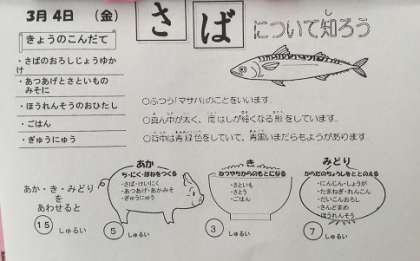 3月4日 (金)
さば について知ろう
きょうのこんだて
・さばのおろしじょうゆか
け
・あつあげとさといもの
みそに
・ほうれんそうのおひたし
・ごはん
・ぎゅうにゅう
○ふつう「マサバ」のことをいいます。
○真ん中が太く、両はしが細くなる形をしています。
○背中は青緑色をしていて、青黒いまだらもようがあります。
あか・き・みどり
を
あわせると
15 しゅるい
あか
ち・にく・ほねをつくる
・さば・けいにく
・あつあげ・あかみそ
・ぎゅうにゅう
5 しゅるい
き
ねつやちからのもとになる
・さといも
・さとう
・ごはん
3 しゅるい
みどり
からだのちょうしをととのえる
・にんじん・しょうが
・たまねぎ・れんこん
・だいこんおろし
・さんどまめ
・ほうれんそう
7 しゅるい